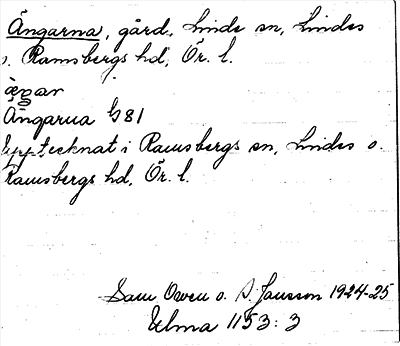 Ängarna, gård, Linde sn, Lindes
o. Ramsbergs hd, Ör. l.
Ängarna G81
Upptecknat i Ramsbergs sn, Lindes o.
Ramsbergs hd, Ör. l.
Sam Owen o. S. Jansson 1924-25
Ulma 1153:3